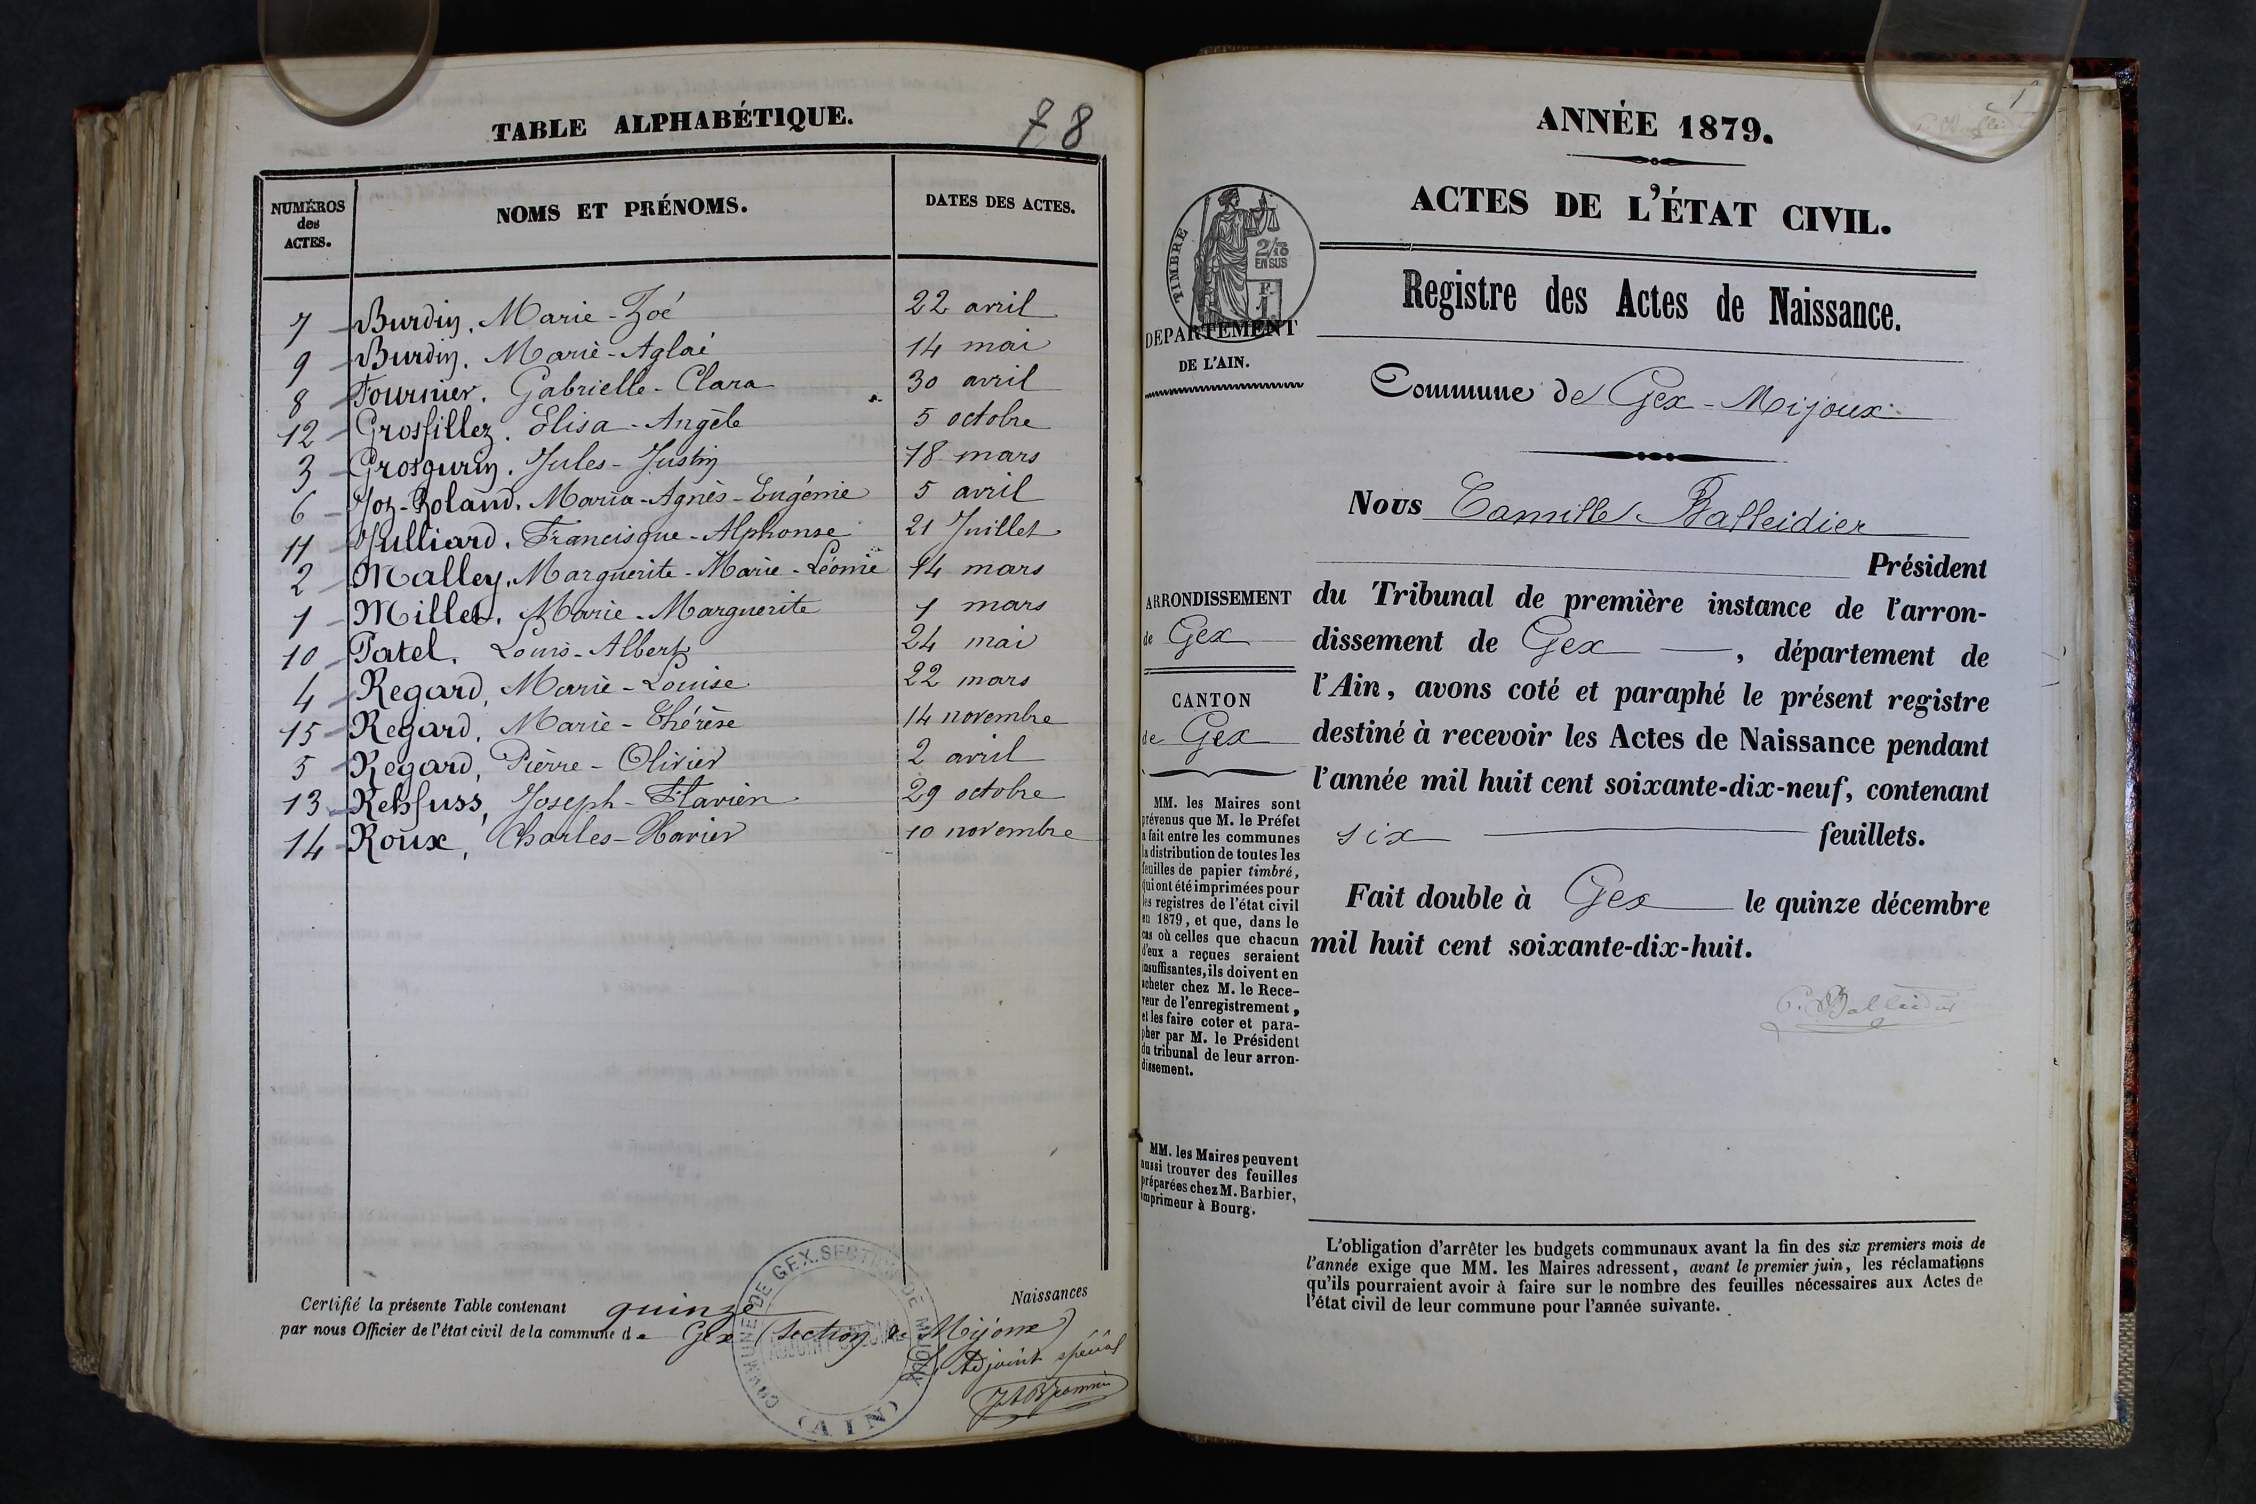 TABLE ALPHABÉTIQUE.
78
NUMÉROS
des
ACTES.
NOMS ET PRÉNOMS.
DATES DES ACTES.
7 Burdin, Marie-Zoé 22 avril
9 Burdin, Marie-Aglaé 14 mai
8 Fournier, Gabrielle-Clara 30 avril
12 Grosfillez, Elisa-Angèle 5 octobre
3 Grosgurin, Jules-Justin 18 mars
6 Joz-Roland, Maria-Agnès-Eugénie 5 avril
11 Julliard, Francisque-Alphonse 21 Juillet
2 Malley, Marguerite-Marie-Léonie 14 mars
1 Millet, Marie-Marguerite 1 mars
10 Patel, Louis-Albert 24 mai
4 Regard, Marie-Louise 22 mars
15 Regard, Marie-Thérèse 14 novembre
5 Regard, Pierre-Olivier 2 avril
13 Rehfuss, Joseph-Flavien 29 octobre
14 Roux, Charles-Xavier 10 novembre
Certifié la présente Table contenant quinze Naissances
par nous Officier de l'état civil de la commune de Gex (Section de Mijoux)
L'Adjoint spécial
COMMUNE DE GEX. SECTION DE MIJOUX
ADJOINT SPÉCIAL
(AIN)
ANNÉE 1879.
ACTES DE L'ÉTAT CIVIL.
TIMBRE
2/10
EN SUS
F.
1
Registre des Actes de Naissance.
DEPARTEMENT
DE L'AIN.
Commune de Gex-Mijoux
Nous Camille Balleidier
Président
du Tribunal de première instance de l'arron-
dissement de Gex, département de
l'Ain, avons coté et paraphé le présent registre
destiné à recevoir les Actes de Naissance pendant
l'année mil huit cent soixante-dix-neuf, contenant
six feuillets.
Fait double à Gex le quinze décembre
mil huit cent soixante-dix-huit.
C. Balleidier
ARRONDISSEMENT
de Gex
CANTON
de Gex
MM. les Maires sont
prévenus que M. le Préfet
a fait entre les communes
la distribution de toutes les
feuilles de papier timbré,
qui ont été imprimées pour
les registres de l'état civil
en 1879, et que, dans le
cas où celles que chacun
d'eux a reçues seraient
insuffisantes, ils doivent en
acheter chez M. le Rece-
veur de l'enregistrement,
et les faire coter et para-
pher par M. le Président
du tribunal de leur arron-
dissement.
MM. les Maires peuvent
aussi trouver des feuilles
préparées chez M. Barbier,
imprimeur à Bourg.
L'obligation d'arrêter les budgets communaux avant la fin des six premiers mois de
l'année exige que MM. les Maires adressent, avant le premier juin, les réclamations
qu'ils pourraient avoir à faire sur le nombre des feuilles nécessaires aux Actes de
l'état civil de leur commune pour l'année suivante.